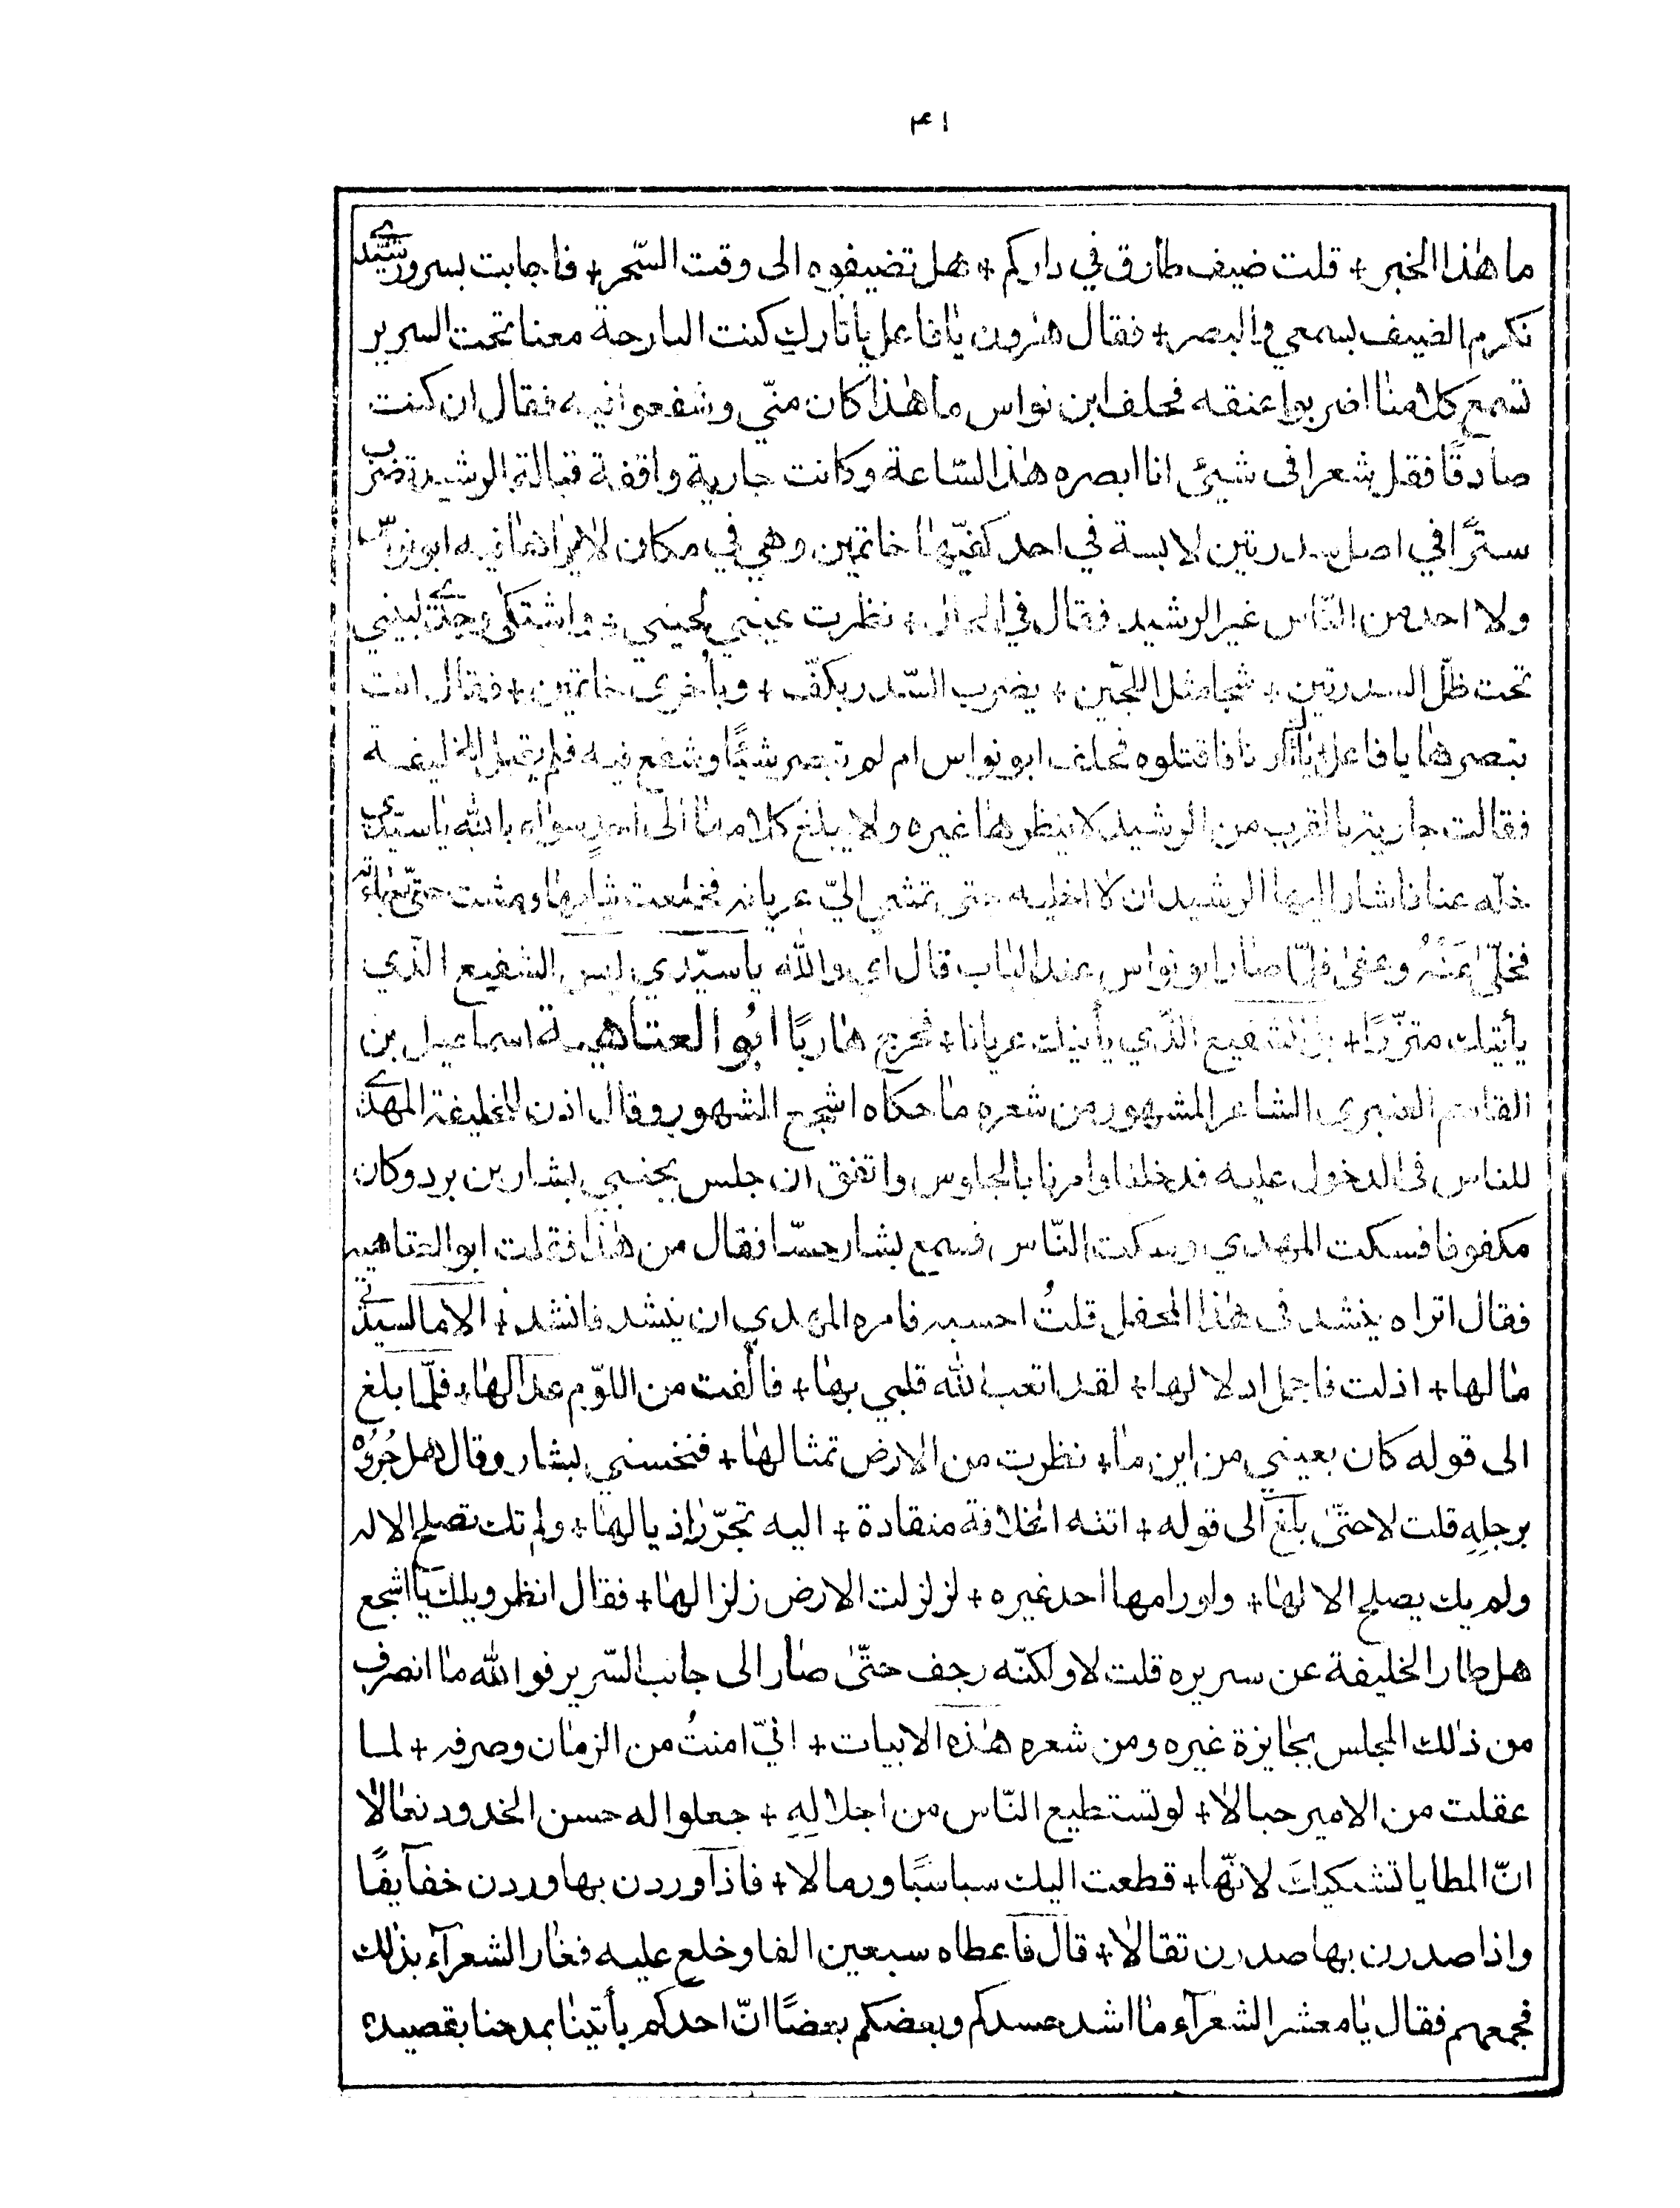 ٤١
ما هٰذا الخبر + قلت ضيف طارق في داركم + هل تضيفوه الى وقت السّحر + فاجابت بسرور سيّدي
نكرم الضيف بسمعي والبصر + فقال هٰرون يا فاعل يا تارك كنت البارحة معنا تحت السرير
تسمع كلامنا اضربوا عنقه فحلف ابن نواس ما هٰذا كان منّي وشفعوا فيه فقال ان كنت
صادقًا فقل شعرا فى شيئ انا ابصره هٰذا السّاعة وكانت جارية واقفة قبالة الرشيد تضرب
سترًا في اصل سدرتين لابسة في احد كفيّها خاتمين وهي في مكان لا يراها فيه ابو نواس
ولا احد من النّاس غير الرشيد فقال في الحال + نظرت عيني لحيني + واشتكى وجدي لبيني
تحت ظلّ السدرتين + شجا مثل اللجّين + يضرب السّدر بكفّ + وبأخرى خاتمين + فقال انت
تبصرها يا فاعل يا تارك فاقتلوه فحلف ابو نواس ام لم تبصر شيًا وشفع فيه فلم يقبل الخليفة
فقالت جارية بالقرب من الرشيد لا ينظرها غيره ولا يبلغ كلامها الى احدٍ سواه بالله يا سيّدي
خلّه عنا فاشار اليها الرشيد ان لا اخليه حتى تمشي اليّ عريانه فخلعت ثيابها ومشت حتّى
فخلّى عَنْهُ وعفىٰ فلمّا صار ابو نواس عند الباب قال اي والله يا سيّدي ليس الشفيع الّذي
يأتيك متزّرًا + مثل الشفيع الّذي يأتيك عريانا + فخرج هاربًا ابُو العتاهية اسماعيل بن
القاسم العنبري الشاعر المشهور من شعره ما حكاه اشجع المشهور وقال اذن الخليفة المهدي
للناس فى الدخول عليه فدخلنا وامرنا بالجلوس واتفق ان جلس بجنبي بشار بن برد وكان
مكفوفا فسكت المهدي وسكت النّاس فسمع بشار حسّا فقال من هٰذا فقلت ابو العتاهيه
فقال اتراه ينشد فى هٰذا المحفل قلتُ احسبه فامره المهدي ان ينشد فانشد + الا ما لسيدتي
ما لها + اذلت فاجمل ادلالها + لقد اتعب الله قلبي بها + فالفت من اللوّم عذالها + فلمّا بلغ
الى قوله كان بعيني من اين ما + نظرت من الارض تمثالها + فنخسني بشار وقال هل جُرّوه
برجلهِ قلت لا حتّىٰ بلغ الى قوله + اتته الخلافة منقادة + اليه تجرّر اذيالها + ولم تك تصلح الا له
ولم يك يصلح الا لها + ولو رامها احد غيره + لزلزلت الارض زلزالها + فقال انظر ويلك يا اشجع
هل طار الخليفة عن سريره قلت لا ولكنّه رجف حتّىٰ صار الى جانب السّرير فوالله ما انصرف
من ذٰلك المجلس بجايزة غيره ومن شعره هٰذه الابيات + انيّ امنتُ من الزمان وصرفه + لما
عقلت من الامير حبالا + لو تستطيع النّاس من اجلالهِ + جعلوا له حسن الخدود نعالا
انّ المطايا تشتكيك لانّها + قطعت اليك سباسبًا ورمالا + فاذا وردن بها وردن خفآيفًا
واذا صدرن بها صدرن ثقالا + قال فاعطاه سبعين الفا وخلع عليه فغار الشعرآء بذٰلك
فجمعهم فقال يا معشر الشعرآء ما اشد حسدكم وبعضكم بعضًا انّ احدكم يأتينا بمدحنا بقصيده